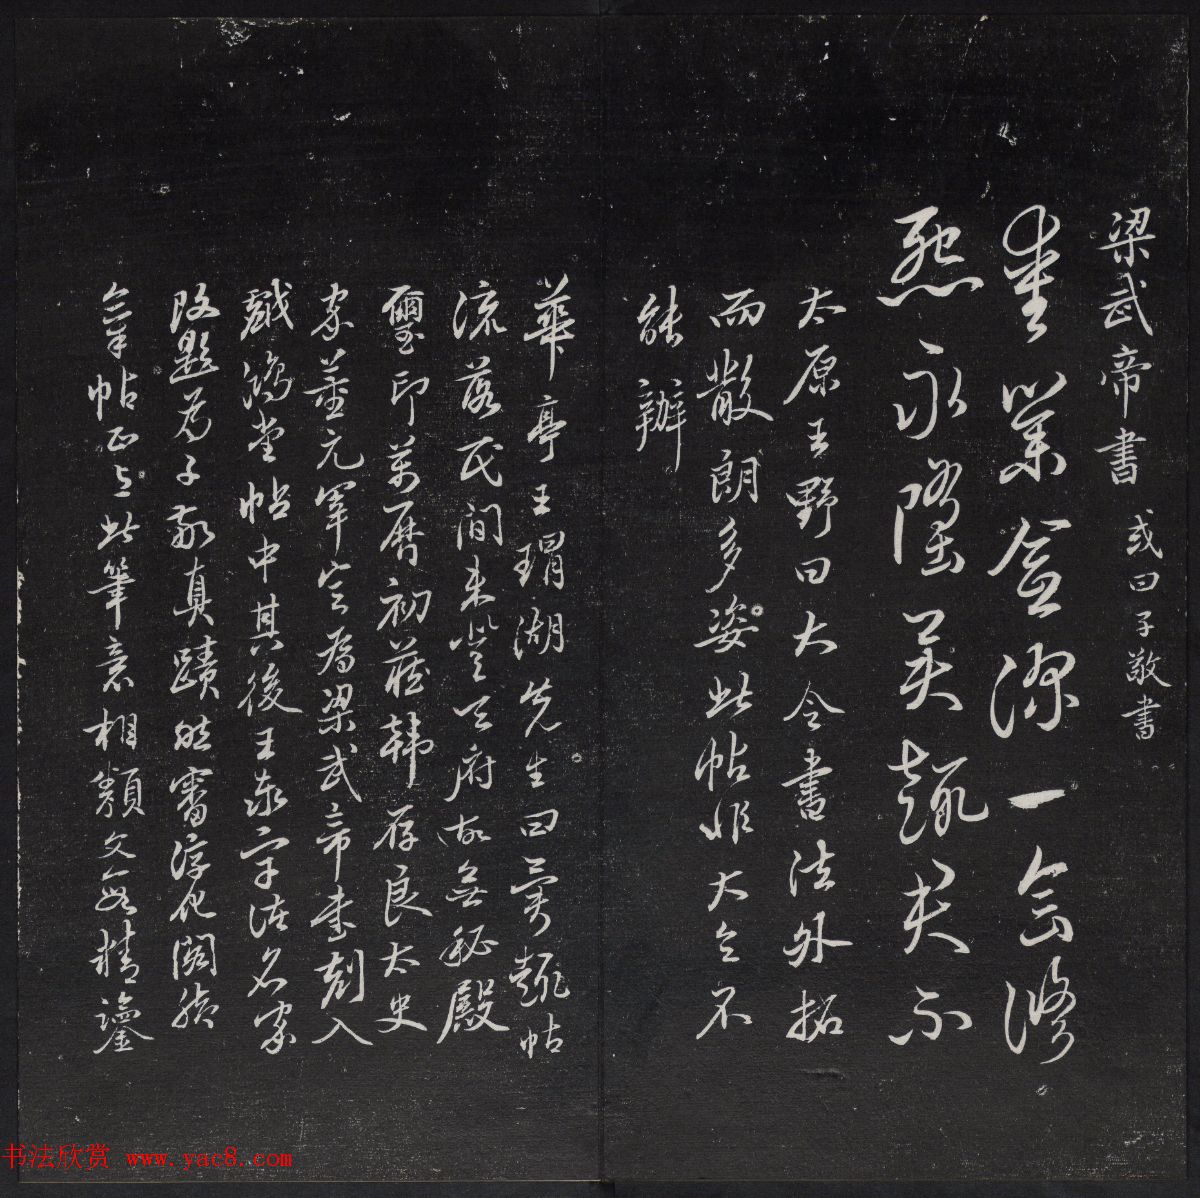 梁武帝書 或曰子敬書
愛業愈深一念修
怨永墮異趣君不
太原王野曰大令書法外拓
而散朗多姿此帖非大令不
能辦
華亭王瑁湖先生曰異趣帖
流落民間未登天府故無秘殿
璽印萬曆初藏韓存良太史
家董元宰定為梁武帝書刻入
戲鴻堂帖中其後王泰宇諸名家
改題為子敬真蹟然審淳化閣腳
氣帖正與此筆意相類文敏精鑒
书法欣赏 www.yac8.com